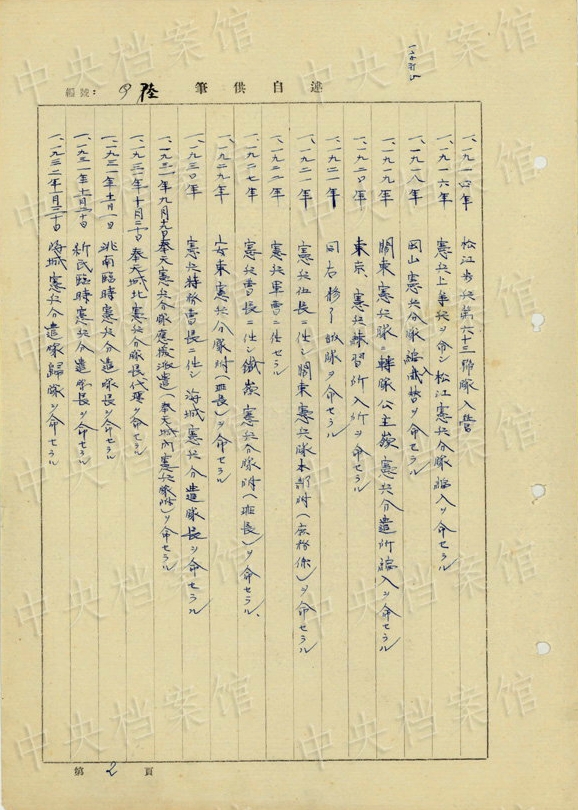 編號:
述自供筆
一、一九一〇年 松江步兵第六十三聯隊入營
一、一九一六年 憲兵上等兵ヲ命シ松江憲兵分隊編入ヲ命セラル
一、一九一八年 岡山憲兵分隊ヘ編成替ヲ命セラル
一、一九一九年 關東憲兵隊ニ轉隊公主嶺憲兵分遣所編入ヲ命セラル
一、一九二〇年 東京、憲兵練習所入所ヲ命セラル
一、一九二一年 同右修了歸隊ヲ命セラル
一、一九二一年 憲兵伍長ニ任シ關東憲兵隊本部附(庶務係)ヲ命セラル
一、一九二二年 憲兵軍曹ニ任セラル
一、一九二七年 憲兵曹長ニ任シ鐵嶺憲兵分隊附(班長)ヲ命セラル、
一、一九二九年 安東憲兵分隊附(班長)ヲ命セラル
一、一九三〇年 憲兵特務曹長ニ任シ海城憲兵分遣隊長ヲ命セラル
一、一九三一年九月十九日奉天憲兵分隊應援派遣(奉天城內憲兵隊附)ヲ命セラル
一、一九三一年十月二十日奉天城北憲兵分隊長代理ヲ命セラル
一、一九三一年十一月一日 洮南臨時憲兵分遣隊長ヲ命セラル
新民臨時憲兵分遣隊長ヲ命セラル
海城憲兵分遣隊歸隊ヲ命セラル
第 2 頁
中央档案馆